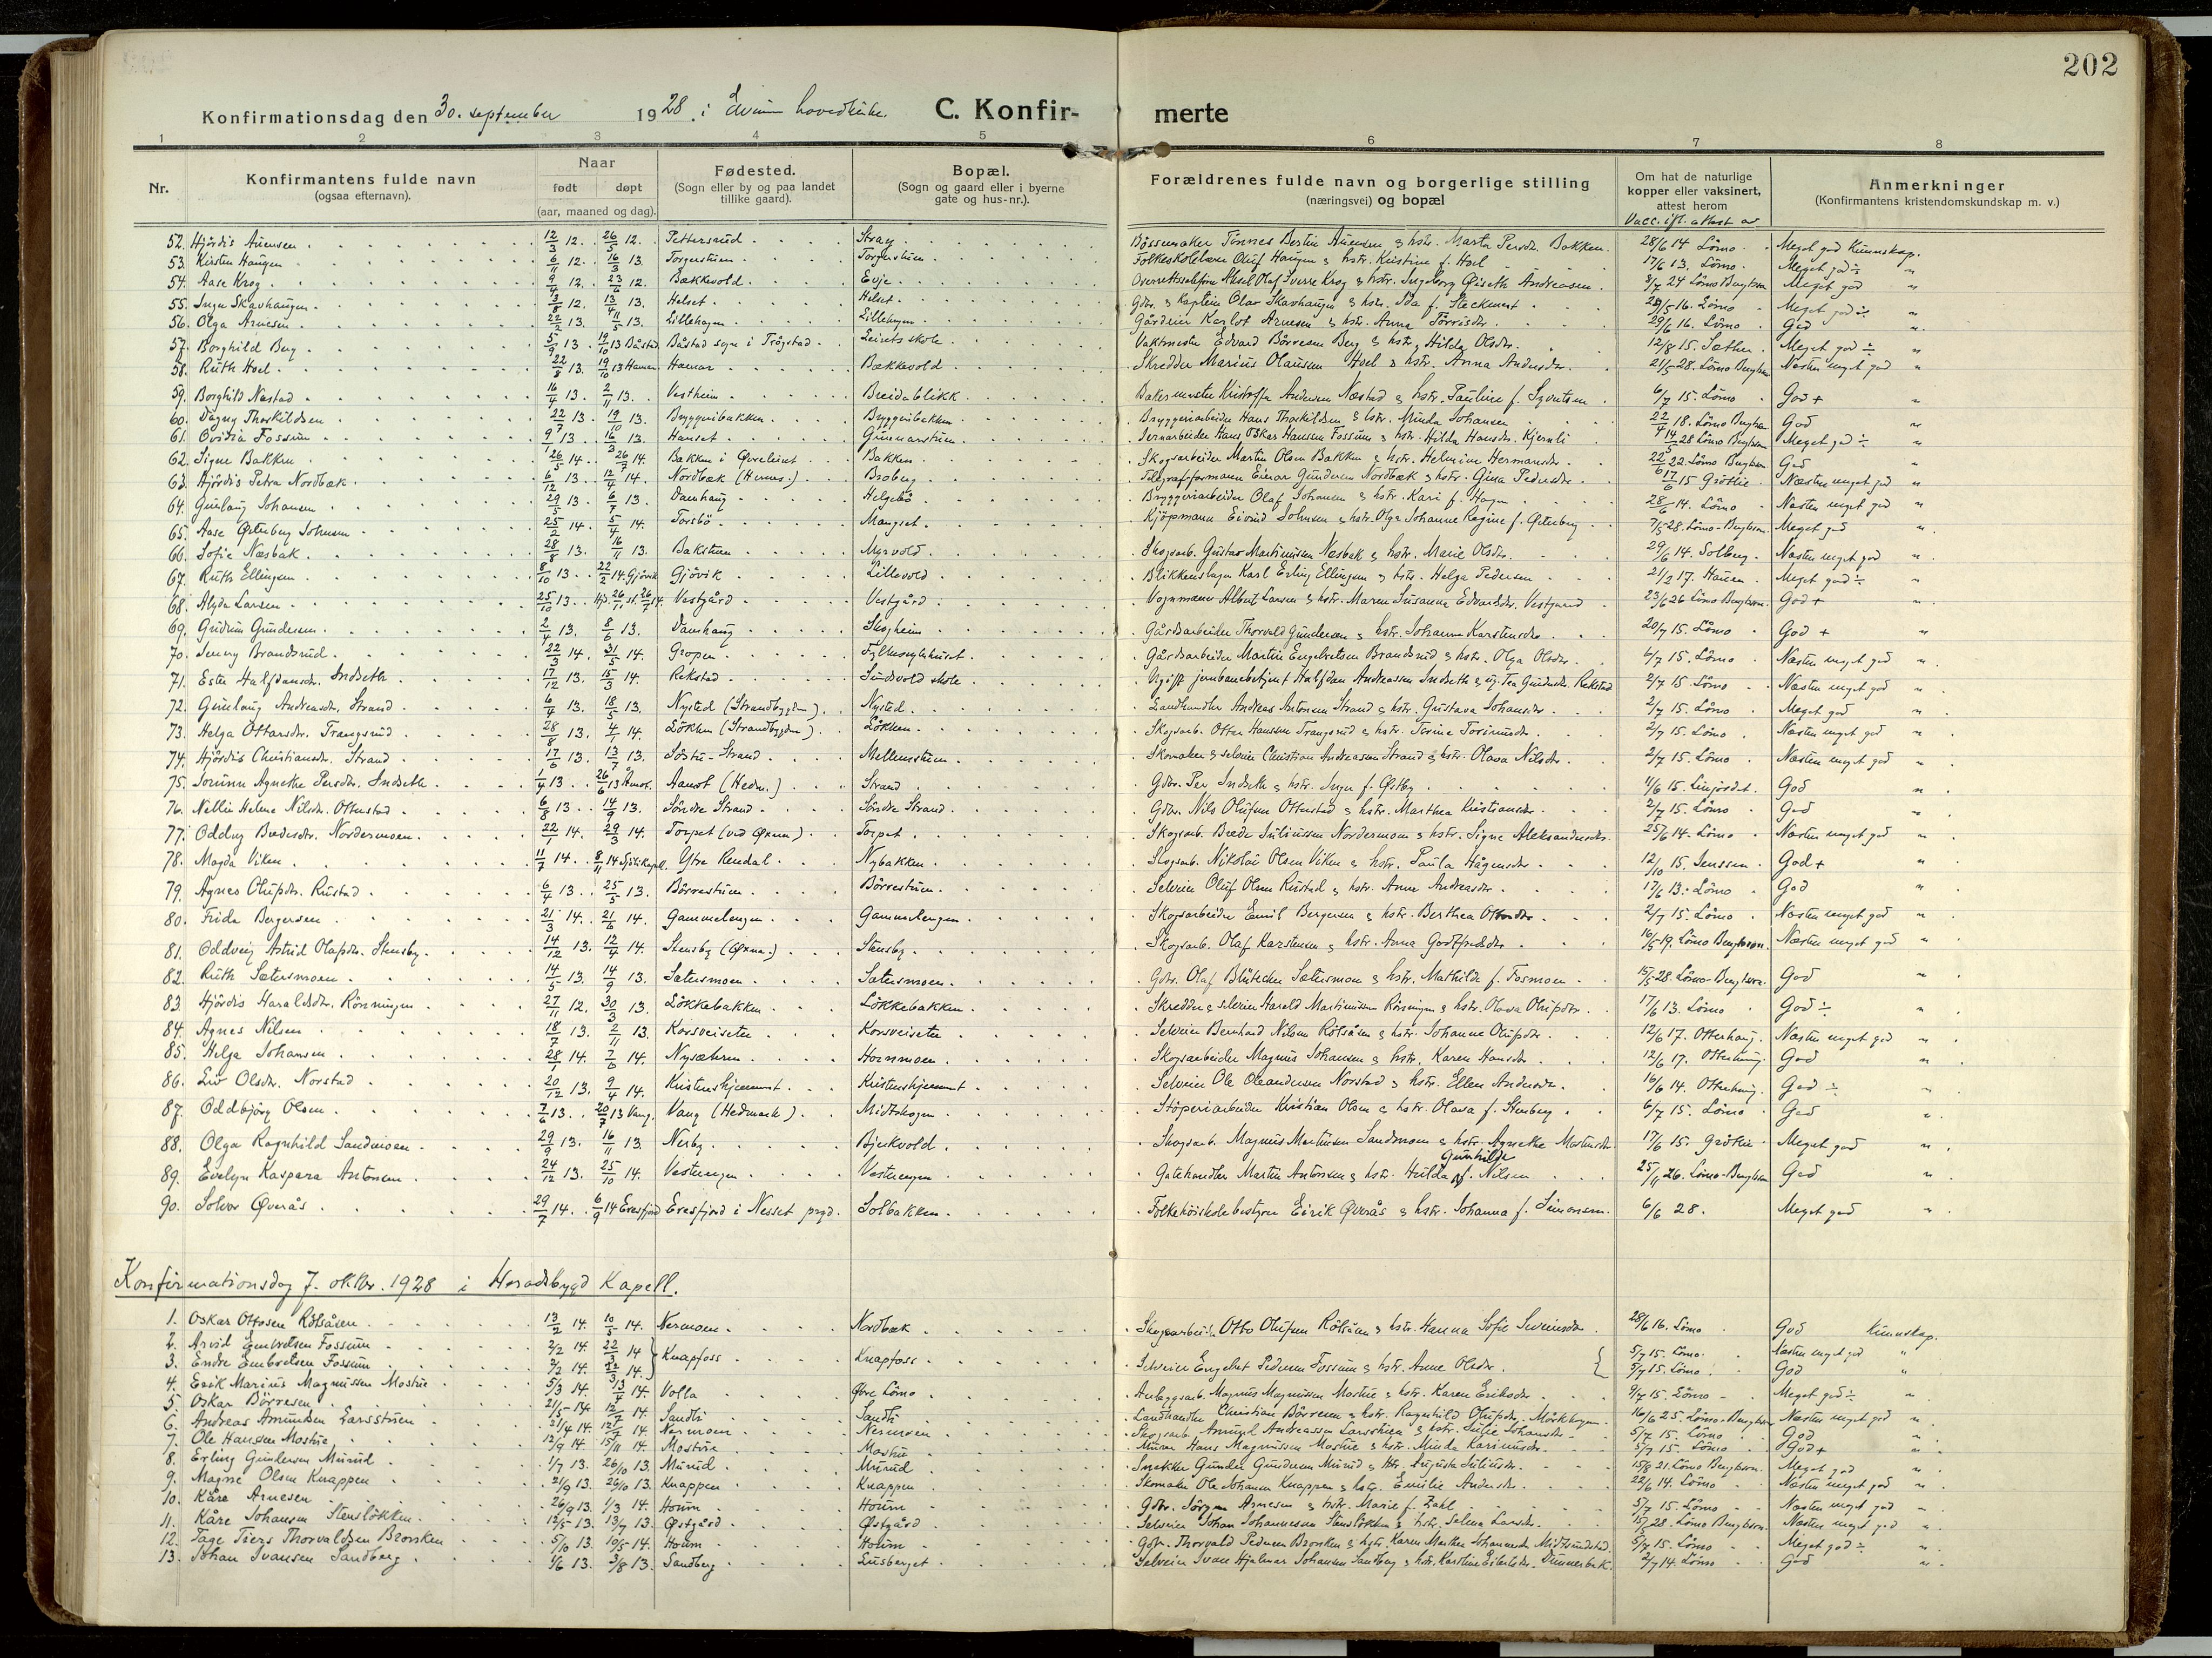 202
Konfirmationsdag den 30. september 1928. i hovedkirke. C. Konfir- merte
1 2 3 4 5 6 7 8
Nr. Konfirmantens fulde navn (ogsaa efternavn). Naar født døpt (aar, maaned og dag). Fødested. (Sogn eller by og paa landet tillike gaard). Bopæl. (Sogn og gaard eller i byerne gate og hus-nr.). Forældrenes fulde navn og borgerlige stilling (næringsvei) og bopæl Om hat de naturlige kopper eller vaksinert, attest herom Vacc. ifl. attest av Anmerkninger (Konfirmantens kristendomskundskap m. v.)
52. Hjördis Auensen 12/3 12. 26/5 12. Pettersrud Strøg Bøssemaker Tinnes Bertin Auensen & hstr. Marta Persdr. Bakken. 28/6 14 Lömo Meget god Kunnskap.
53. Kirsten Haugen 6/11 12. 16/3 13. Torgerstuen Torgerstuen Folkeskolelærer Oluf Haugen & hstr. Kristine f. Hoel 17/6 13. Lömo. Meget god ÷ "
54. Aase Krog 9/4 12. 23/6 12. Bækkevold Evje Overrettssakfører Aksel Olaf Sverre Krog & hstr. Ingeborg Andreasen 8/7 24 Lömo Meget god "
55. Inga Skavhaugen 3/8 12. 13/4 13. Helset Helset Gdbr. & Kaptein Olav Skavhaugen & hstr. Ida f. 29/5 16. Lömo Meget god ÷ "
56. Olga Arnesen 22/2 13. 11/5 13. Lillehagen Lillehagen Gårdeier Karlot Arnesen & hstr. Anna Törrisdr. 29/6 16. Lömo God "
57. Borghild Berg 5/9 13. 19/10 13 Båstad Båstad sogn i Trøgstad Leirets skole Vaktmester Edvard Börresen Berg & hstr. Hilda Olsdr. 12/8 15. Sæther Meget god ÷ "
58. Ruth Hoel 22/8 13. 19/10 13 Hamar Hamar Bækkevold Skredder Marius Olausen Hoel & hstr. Anna Andersdr. 21/5 28. Lömo Næsten meget god "
59. Borghild Næstad 16/4 13. 2/11 13. Vestheim Breidablikk Bakermester Kristoffer Andersen Næstad & hstr. Pauline f. Syvertsen 6/7 15. Lömo God + "
60. Dagny Thorkildsen 22/7 13. 19/10 13. Bryggeribakken Bryggeribakken Bryggeriarbeider Hans Thorkildsen & hstr. Minda Johansen 22/4 18. Lömo God "
61. Ovidia Fossum 9/1 13. 16/3 13. Hanset Gunnarstuen Jernarbeider Hans Oskar Hansen Fossum & hstr. Hilda Hansdr. Kjernli 14/5 28 Lömo Meget god ÷ "
62. Signe Bakken 26/5 14. 26/7 14. Bakken i Øvreleiret Bakken Skogsarbeider Martin Olsen Bakken & hstr. Helmine Hermansdr. 22/6 22. Lömo God "
63. Hjördis Petra Nordbæk 6/12 13. 12/4 14. Nordbæk (Hernes.) Broberg Telegrafformann Einar Gundersen Nordbæk & hstr. Gina Pedersdr. 17/6 15 Gröttie Næsten meget god "
64. Gunlaug Johansen 29/5 13. 6/7 13. Damhaug Helgebö Bryggeriarbeider Olaf Johansen & hstr. Kari f. Hagen 28/6 14. Lömo Næsten meget god "
65. Aase Østerberg Johnsen 25/2 14. 5/4 14. Torsbö Mangset Kjöpmann Eivind Johnsen & hstr. Olga Johanne Regine f. Østerberg 7/5 28. Lömo Meget god "
66. Sofie Næsbak 28/8 13. 16/11 13. Bakstuen Myrvold Skogsarb. Gustav Martinissen Næsbak & hstr. Marie Olsdr. 29/6 14. Solberg Næsten meget god "
67. Ruth Ellingsen 8/10 13. 22/2 14. Gjövik Gjövik Lillevold Blikkenslager Karl Erling Ellingsen & hstr. Helga Pedersen 21/2 17. Meget god ÷ "
68. Alyda Larsen 25/10 13. Hjd. 26/11 st. 26/7 14. Vestgård Vestgård Vognmann Albert Larsen & hstr. Maren Susanna Edvardsdr. Vestgaard 23/6 26 Lömo God + "
69. Gudrun Gundersen 2/4 13. 8/6 13. Damhaug Skogheim Gårdsarbeider Thorvald Gundersen & hstr. Johanne Karstensdr. 20/7 15. Lömo God + "
70. Jenny Brandsrud 22/3 14. 31/5 14. Gropen Gårdsarbeider Martin Engebretsen Brandsrud & hstr. Olga Olsdr. 6/7 15. Lömo Næsten meget god "
71. Ester Halfdansdr. Indseth 17/12 13. 15/3 14. Rekstad Sundvold skole Ugift jernbanebetjent Halfdan Andreassen Indseth & ug. Tea Gundersdr. Rekstad 2/7 15. Lömo Næsten meget god "
72. Gunlaug Andreasdr. Strand 6/4 13. 18/5 13. Nysted (Strandbygden) Nysted Landhandler Andreas Antonsen Strand & hstr. Gustava Johansdr. 2/7 15. Lömo Meget god "
73. Helga Ottarsdr. Trangsrud 28/8 13. 4/1 14. Lökken (Strandbygden) Lökken Skogsarb. Ottar Hanssen Trangsrud & hstr. Serine Torimundsdr. 2/7 15. Lömo Næsten meget god "
74. Hjördis Christiansdr. Strand 17/6 13. 13/7 13. Söstu-Strand Mellemstuen Skomaker & selveier Christian Andreassen Strand & hstr. Olava Nilsdr. 2/7 15. Lömo Næsten meget god "
75. Jorunn Agnethe Persdr. Indseth 1/4 13. 26/6 13 Åmot. Aamot (Hedm.) Strand Gdbr. Per Indseth & hstr. Inga f. Østby 11/6 15. Linjordet God "
76. Nellie Helene Nilsdr. Ottenstad 6/8 13. 14/9 13. Söndre Strand Söndre Strand Gdbr. Nils Olufsen Ottenstad & hstr. Marthea Kristiansdr. 2/7 15. Lömo God "
77. Oddny Bredesdr. Nordermoen 22/1 14. 29/3 14. Torpet (ved Øxna) Torpet Skogsarb. Brede Juliussen Nordermoen & hstr. Signe Aleksandersdr. 25/6 14. Lömo Næsten meget god "
78. Magda Viken 11/7 14. 8/11 14 Ytre Rendal Nybakken Skogsarb. Nikolai Olsen Viken & hstr. Paula Hågensdr. 12/10 15. Jenssen God + "
79. Agnes Olufsdr. Rustad 6/4 13. 25/5 13. Börrestuen Börrestuen Selveier Oluf Olsen Rustad & hstr. Anne Andreasdr. 17/6 13. Lömo God "
80. Frida Bergersen 21/3 14. 21/6 14. Gammelengen Gammelengen Skogsarbeider Emil Bergersen & hstr. Berthea Ottosdr. 2/7 15. Lömo Næsten meget god "
81. Oddveig Astrid Olafsdr. Stensby 14/12 13. 12/4 14. Stensby (Øxna) Stensby Skogsarb. Olaf Karstensen & hstr. Anna Godtfredsdr. 16/5 19. Lömo Næsten meget god "
82. Ruth Sætersmoen 14/5 13. 14/9 13. Sætersmoen Sætersmoen Gdbr. Olaf Sætersmoen & hstr. Mathilde f. Fosmoen 15/5 28 Lömo God "
83. Hjördis Haraldsdr. Rönningen 27/11 12. 30/3 13. Lökkebakken Lökkebakken Skredder & selveier Harald Martinissen Rönningen & hstr. Olava Olufsdr. 17/6 13. Lömo God ÷ "
84. Agnes Nilsen 18/7 13. 2/11 13. Korsveiseter Korsveiseter Selveier Bernhard Nilsen Rötsåsen & hstr. Johanne Olufsdr. 12/6 17. Otterhaug Næsten meget god "
85. Helga Johansen 28/1 14. 7/6 14. Nysætren Hornmoen Skogsarbeider Magnus Johansen & hstr. Karen Hansdr. 12/6 17. Otterhaug God "
86. Liv Olsdr. Norstad 20/12 13. 9/4 14. Kristenshjemmet Kristenshjemmet Selveier Ole Oleandersen Norstad & hstr. Ellen Andersdr. 16/6 14. Otterhaug God ÷ "
87. Oddbjörg Olsen 7/6 13. 20/7 13 Vang. Vang (Hedmark) Midtskogen Stöperiarbeider Kristian Olsen & hstr. Olava f. Stenberg 6/7 15. Lömo God "
88. Olga Ragnhild Sandmoen 29/9 13. 16/11 13. Nerby Bjerkvold Skogsarb. Magnus Martinsen Sandmoen & hstr. Agnethe Martinsdr. 17/6 15. Gröttie Meget god "
89. Evelyn Kaspara Antonsen 24/12 13. 25/10 14. Vestengen Vestengen Gatehandler Martin Antonsen & hstr. Hulda Gunhilda f. Nilsen 25/11 26. Lömo God "
90. Solvor Øverås 29/7 14. 6/9 14 Eresfjord Eresfjord i Nesset prgd. Solbakken Folkehöiskolebestyrer Eirik Øverås & hstr. Johanna f. Simonsen. 6/6 28. Meget god "
Konfirmationsdag 7. oktbr. 1928 i Heradsbygd Kapell.
1. Oskar Ottosen Rötsåsen 13/2 14. 10/5 14. Nermoen Nordbæk Skogsarbeid. Otto Olufsen Rötsåsen & hstr. Hanna Sofie Sveinsdr. 28/6 16. Lömo God Kunnskap.
2. Arvid Embretsen Fossum 2/2 14. 22/3 14 Knapfoss Knapfoss Selveier Engebret Pedersen Fossum & hstr. Anne Olsdr. 5/7 15. Lömo. Næsten meget god "
3. Endre Embretsen Fossum 2/2 14. 22/3 14. 5/7 15. Lömo. God "
4. Erik Marius Magnussen Mostue 5/3 14. 13/4 14. Volla Øvre Lömo Anleggsarb. Magnus Magnussen Mostue & hstr. Karen Eriksdr. 9/7 15. Lömo Meget god ÷ "
5. Oskar Börresen 21/5 14. 12/7 14. Sandli Sandli Landhandler Christian Börresen & hstr. Ragnhild Olufsdr. Mörkhagen 16/6 25. Lömo Næsten meget god "
6. Andreas Amundsen Larsstuen 21/4 14. 12/7 14. Nermoen Nermoen Skogsarb. Amund Andreassen Larsstuen & hstr. Julie Johansdr. 5/7 15. Lömo God "
7. Ole Hansen Mostue 12/9 14. 15/11 14. Mostue Mostue Murer Hans Magnussen Mostue & hstr. Minda Karinusdr. 5/7 15. Lömo God + "
8. Erling Gundersen Murud 1/7 13. 26/10 13. Murud Murud Snekker Gunder Gundersen Murud & hstr. Augusta Juliusdr. 15/8 21. Lömo Meget god "
9. Magne Olsen Knappen 21/9 13. 26/10 13. Knappen Knappen Skomaker Ole Johansen Knappen & hstr. Emilie Andersdr. 22/6 14. Lömo Næsten meget god "
10. Kåre Arnesen 26/9 13. 1/3 14. Houm Houm Gdbr. Jörgen Arnesen & hstr. Marie f. Zahl 5/7 15. Lömo Næsten meget god "
11. Kåre Johansen Stenslökken 12/5 13. 13/7 13. Østgård Østgård Selveier Johan Johannessen Stenslökken & hstr. Selma Larsdr. 15/5 28. Lömo Næsten meget god "
12. Tage Thorvaldsen Bronken 5/10 13. 10/5 14. Houm Houm Gdbr. Thorvald Pedersen Bronken & hstr. Karen Marthea Johannesdr. Midtsundstad. 5/7 15. Lömo Meget god ÷ "
13. Johan Ivansen Sandberg 1/6 13. 3/8 13. Sandberg Lusberget Selveier Ivan Hjalmar Johansen Sandberg & hstr. Karoline Eilertsdr. 2/7 14. Lömo God "